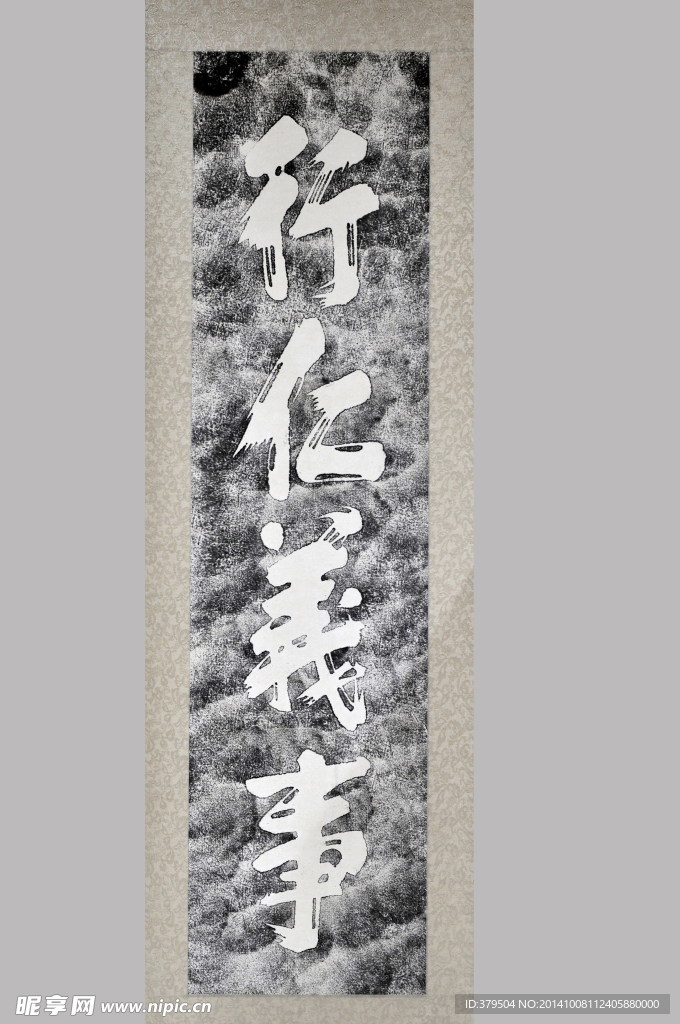 行仁義事
昵享网 www.nipic.cn
ID:379504 NO:20141008112405880000